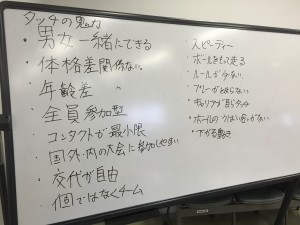 タッチの魅力
・男女一緒にできる
・体格差関係ない。
・年齢差 〃
・全員参加型
・コンタクトが最小限
・国外・内の大会に参加しやすい
・交代が自由
・個ではなくチーム
・スピーディー
・ボールをもって走る
・ルールが少ない。
・プレーが止まらない
・キャリアが
・ボールの
・下がる動き